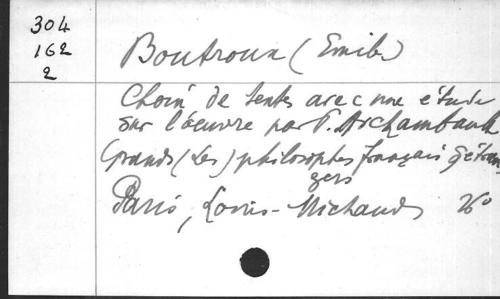 304
162
2
Boutroux (Emile)
Choix de textes avec une étude
sur l'oeuvre par P. Archambault
Grands (Les) philosophes français & étran-
gers
Paris, Louis-Michaud